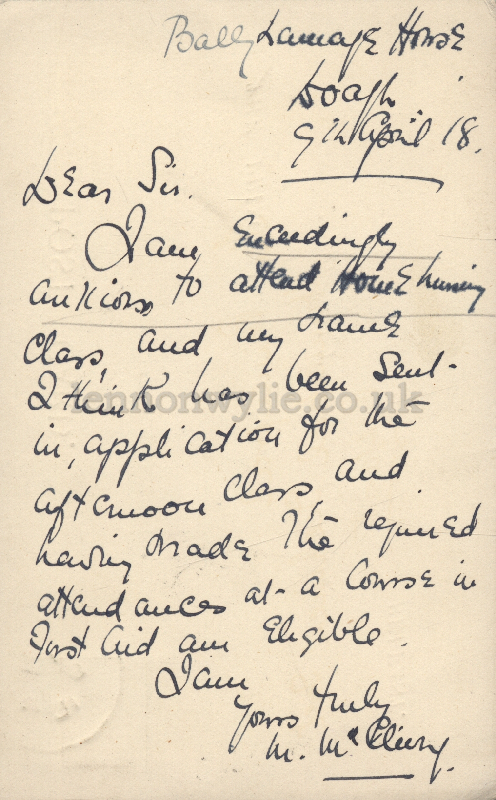 Ballyhamage House
Doagh
9th April 18.
Dear Sir.
I am Exceedingly
anxious to attend Home Nursing
Class, and my name
I think has been sent
in, application for the
afternoon class, and
having made the required
attendances at a Course in
First Aid am Eligible.
I am
Yours truly
M. McCleery.
lennonwylie.co.uk